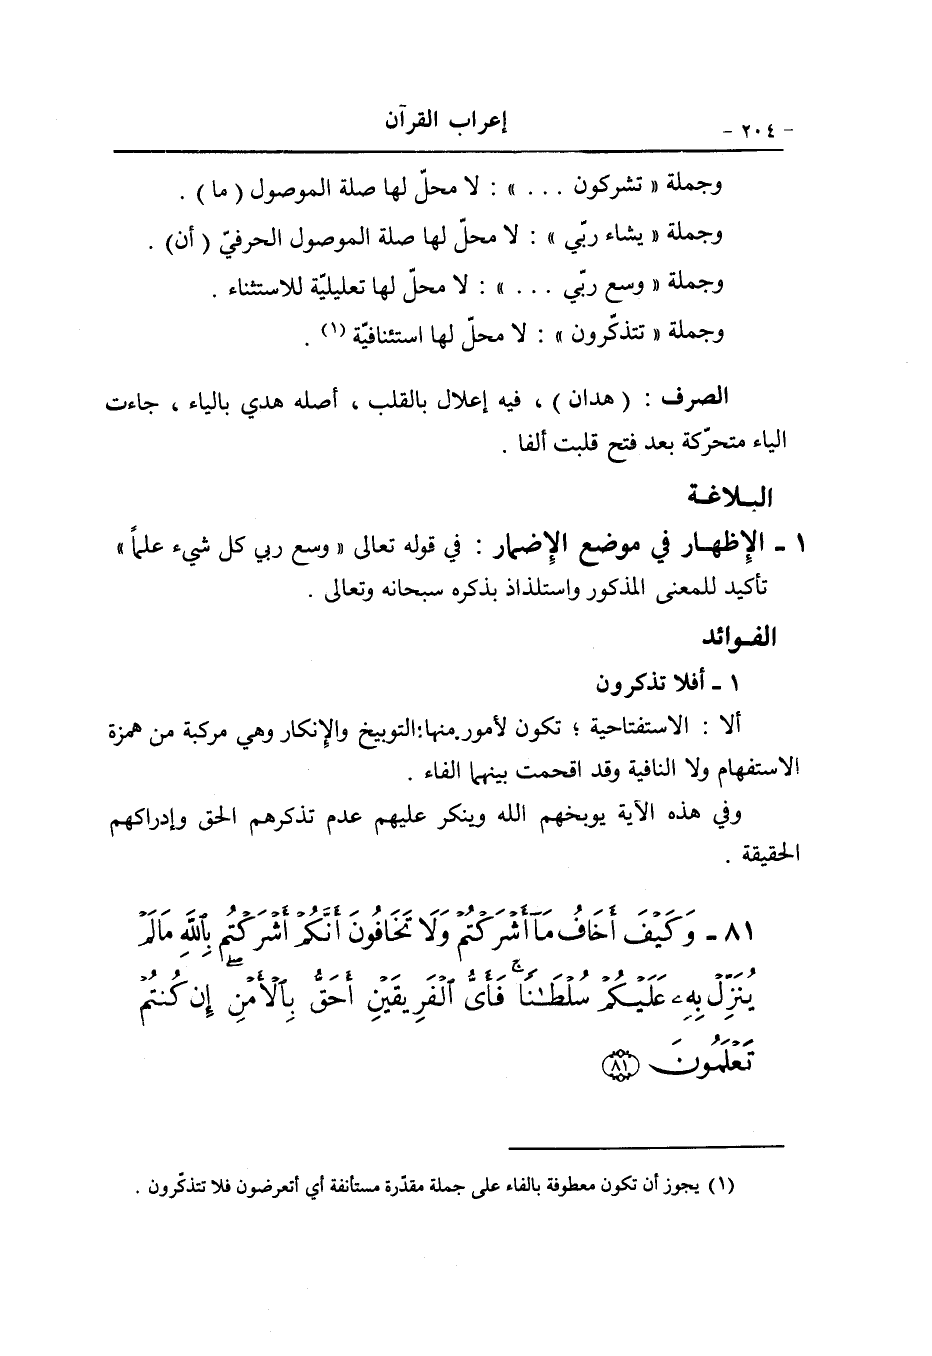 - ٢٠٤ -
إعراب القرآن
وجملة « تشركون . . . » : لا محلّ لها صلة الموصول ( ما ) .
وجملة « يشاء ربّي » : لا محلّ لها صلة الموصول الحرفيّ ( أن) .
وجملة « وسع ربّي . . . » : لا محلّ لها تعليليّة للاستثناء .
وجملة « تتذكّرون » : لا محلّ لها استئنافيّة (١) .
الصرف : ( هدان ) ، فيه إعلال بالقلب ، أصله هدي بالياء ، جاءت
الياء متحرّكة بعد فتح قلبت ألفا .
البـلاغـة
١ - الإظهـار في موضع الإضمار : في قوله تعالى « وسع ربي كل شيء علماً »
تأكيد للمعنى المذكور واستلذاذ بذكره سبحانه وتعالى .
الفـوائد
١ - أفلا تذكرون
ألا : الاستفتاحية ؛ تكون لأمور.منها:التوبيخ والإنكار وهي مركبة من همزة
الاستفهام ولا النافية وقد اقحمت بينهما الفاء .
وفي هذه الآية يوبخهم الله وينكر عليهم عدم تذكرهم الحق وإدراكهم
الحقيقة .
٨١ - وَكَيۡفَ أَخَافُ مَآ أَشۡرَكۡتُمۡ وَلَا تَخَافُونَ أَنَّكُمۡ أَشۡرَكۡتُم بِٱللَّهِ مَالَمۡ
يُنَزِّلۡ بِهِۦ عَلَيۡكُمۡ سُلۡطَـٰنٗاۚ فَأَىُّ ٱلۡفَرِيقَيۡنِ أَحَقُّ بِٱلۡأَمۡنِۖ إِن كُنتُمۡ
تَعۡلَمُونَ ﴿٨١﴾
(١) يجوز أن تكون معطوفة بالفاء على جملة مقدّرة مستأنفة أي أتعرضون فلا تتذكّرون .